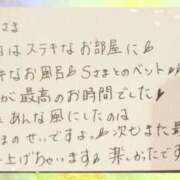 さま
はステキなお部屋に♪
なお風呂♪Sさまとのベット♪
が最高のお時間でした♪
あんな風にしたのは
まのせいですよ。♪次もまた最
上げちゃいます♪楽しかったです